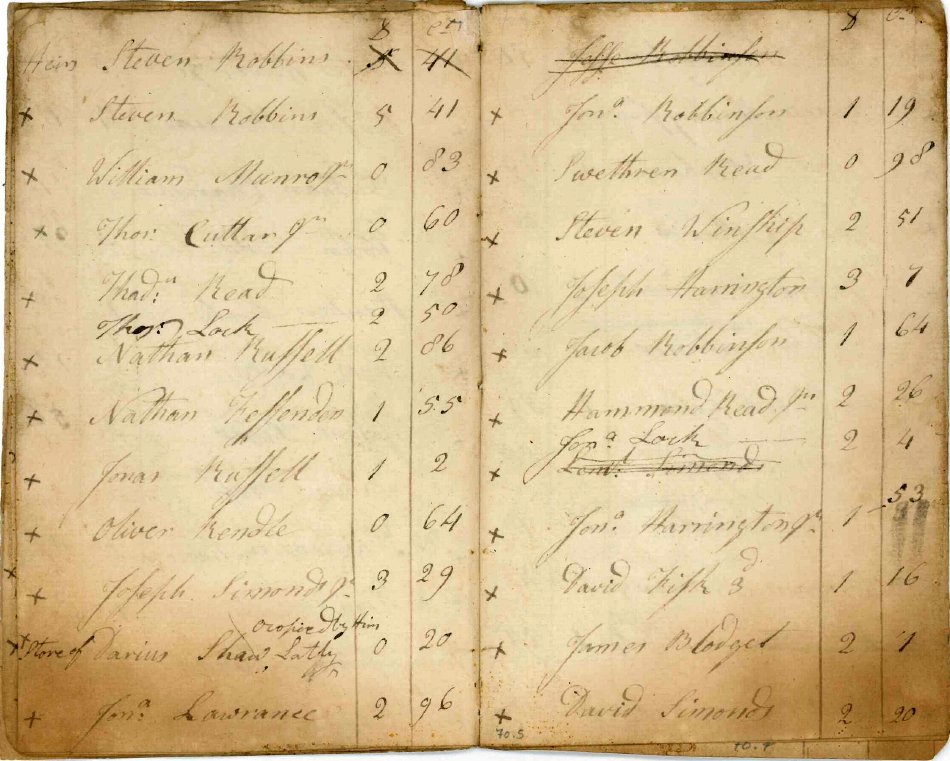 D cts
Heirs Steven Robbins 5 41
x Steven Robbins 5 41
x William Munro Jr 0 83
x Thos. Cuttar Jr 0 60
x Thads. Read 2 78
Thos. Lock 2 50
x Nathan Russell 2 86
x Nathan Fessenden 1 55
x Jonas Russell 1 2
x Oliver Kendle 0 64
x Joseph Simonds Jr 3 29
ocopied by Him
x Store of Darius Shaw Latly 0 20
x Jona. Lawrance 2 96
D cts
Jesse Robbinson
x Jona. Robbinson 1 19
x Swethren Read 0 98
x Steven Winship 2 51
x Joseph Harrington 3 7
x Jacob Robbinson 1 64
x Hammond Read Jr 2 26
Jona. Lock 2 4
x Leml. Simonds
x Jona. Harrington Jr 1 53
x David Fisk 3d 1 16
x James Blodget 2 1
x David Simonds 2 20
70.5 70.7